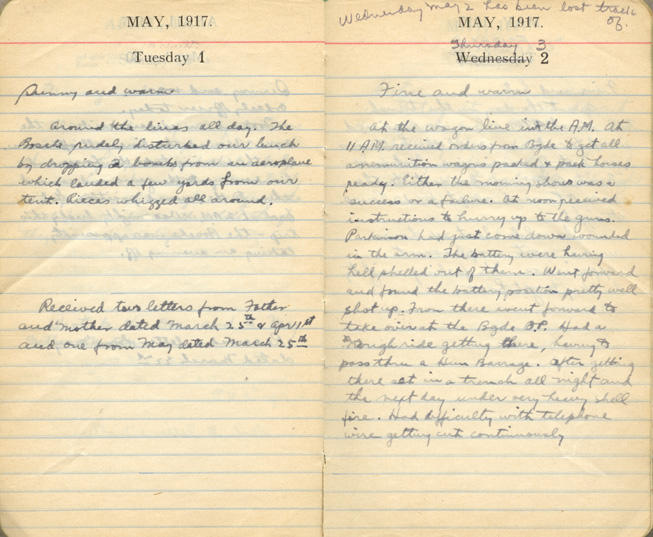 MAY, 1917.
Tuesday 1
Sunny and warm
Around the lines all day. The
Bosche rudely disturbed our lunch
by dropping a bombs from an aeroplane
which landed a few yards from our
tent. Pieces whizzed all around.
Received two letters from Father
and Mother dated March 25th & Apr 1st
and one from May dated March 25th
Wednesday May 2 has been lost track
of.
MAY, 1917.
Thursday 3
Wednesday 2
Fine and warm
At the wagon line in the A.M. At
11 A.M. received orders from Bgde to get all
ammunition wagons packed & pack horses
ready. Either the morning show was a
success or a failure. At noon received
instructions to hurry up to the guns.
Parkinson had just come down wounded
in the arm. The battery were having
hell shelled out of them. Went forward
and found the battery position pretty well
shot up. From there went forward to
take over at the Bgde O.P. Had a
rough ride getting there, having to
pass thru a Hun Barrage. After getting
there sat in a trench all night and
the next day under very heavy shell
fire. Had difficulty with telephone
wire getting cut continuously